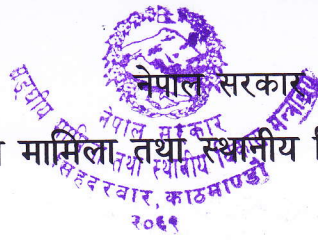 नेपाल सरकार
मामिला तथा स्थानीय
सङ्घीय
नेपाल सरकार
तथा स्थानीय
सिंहदरवार, काठमाण्डौ
२०६९